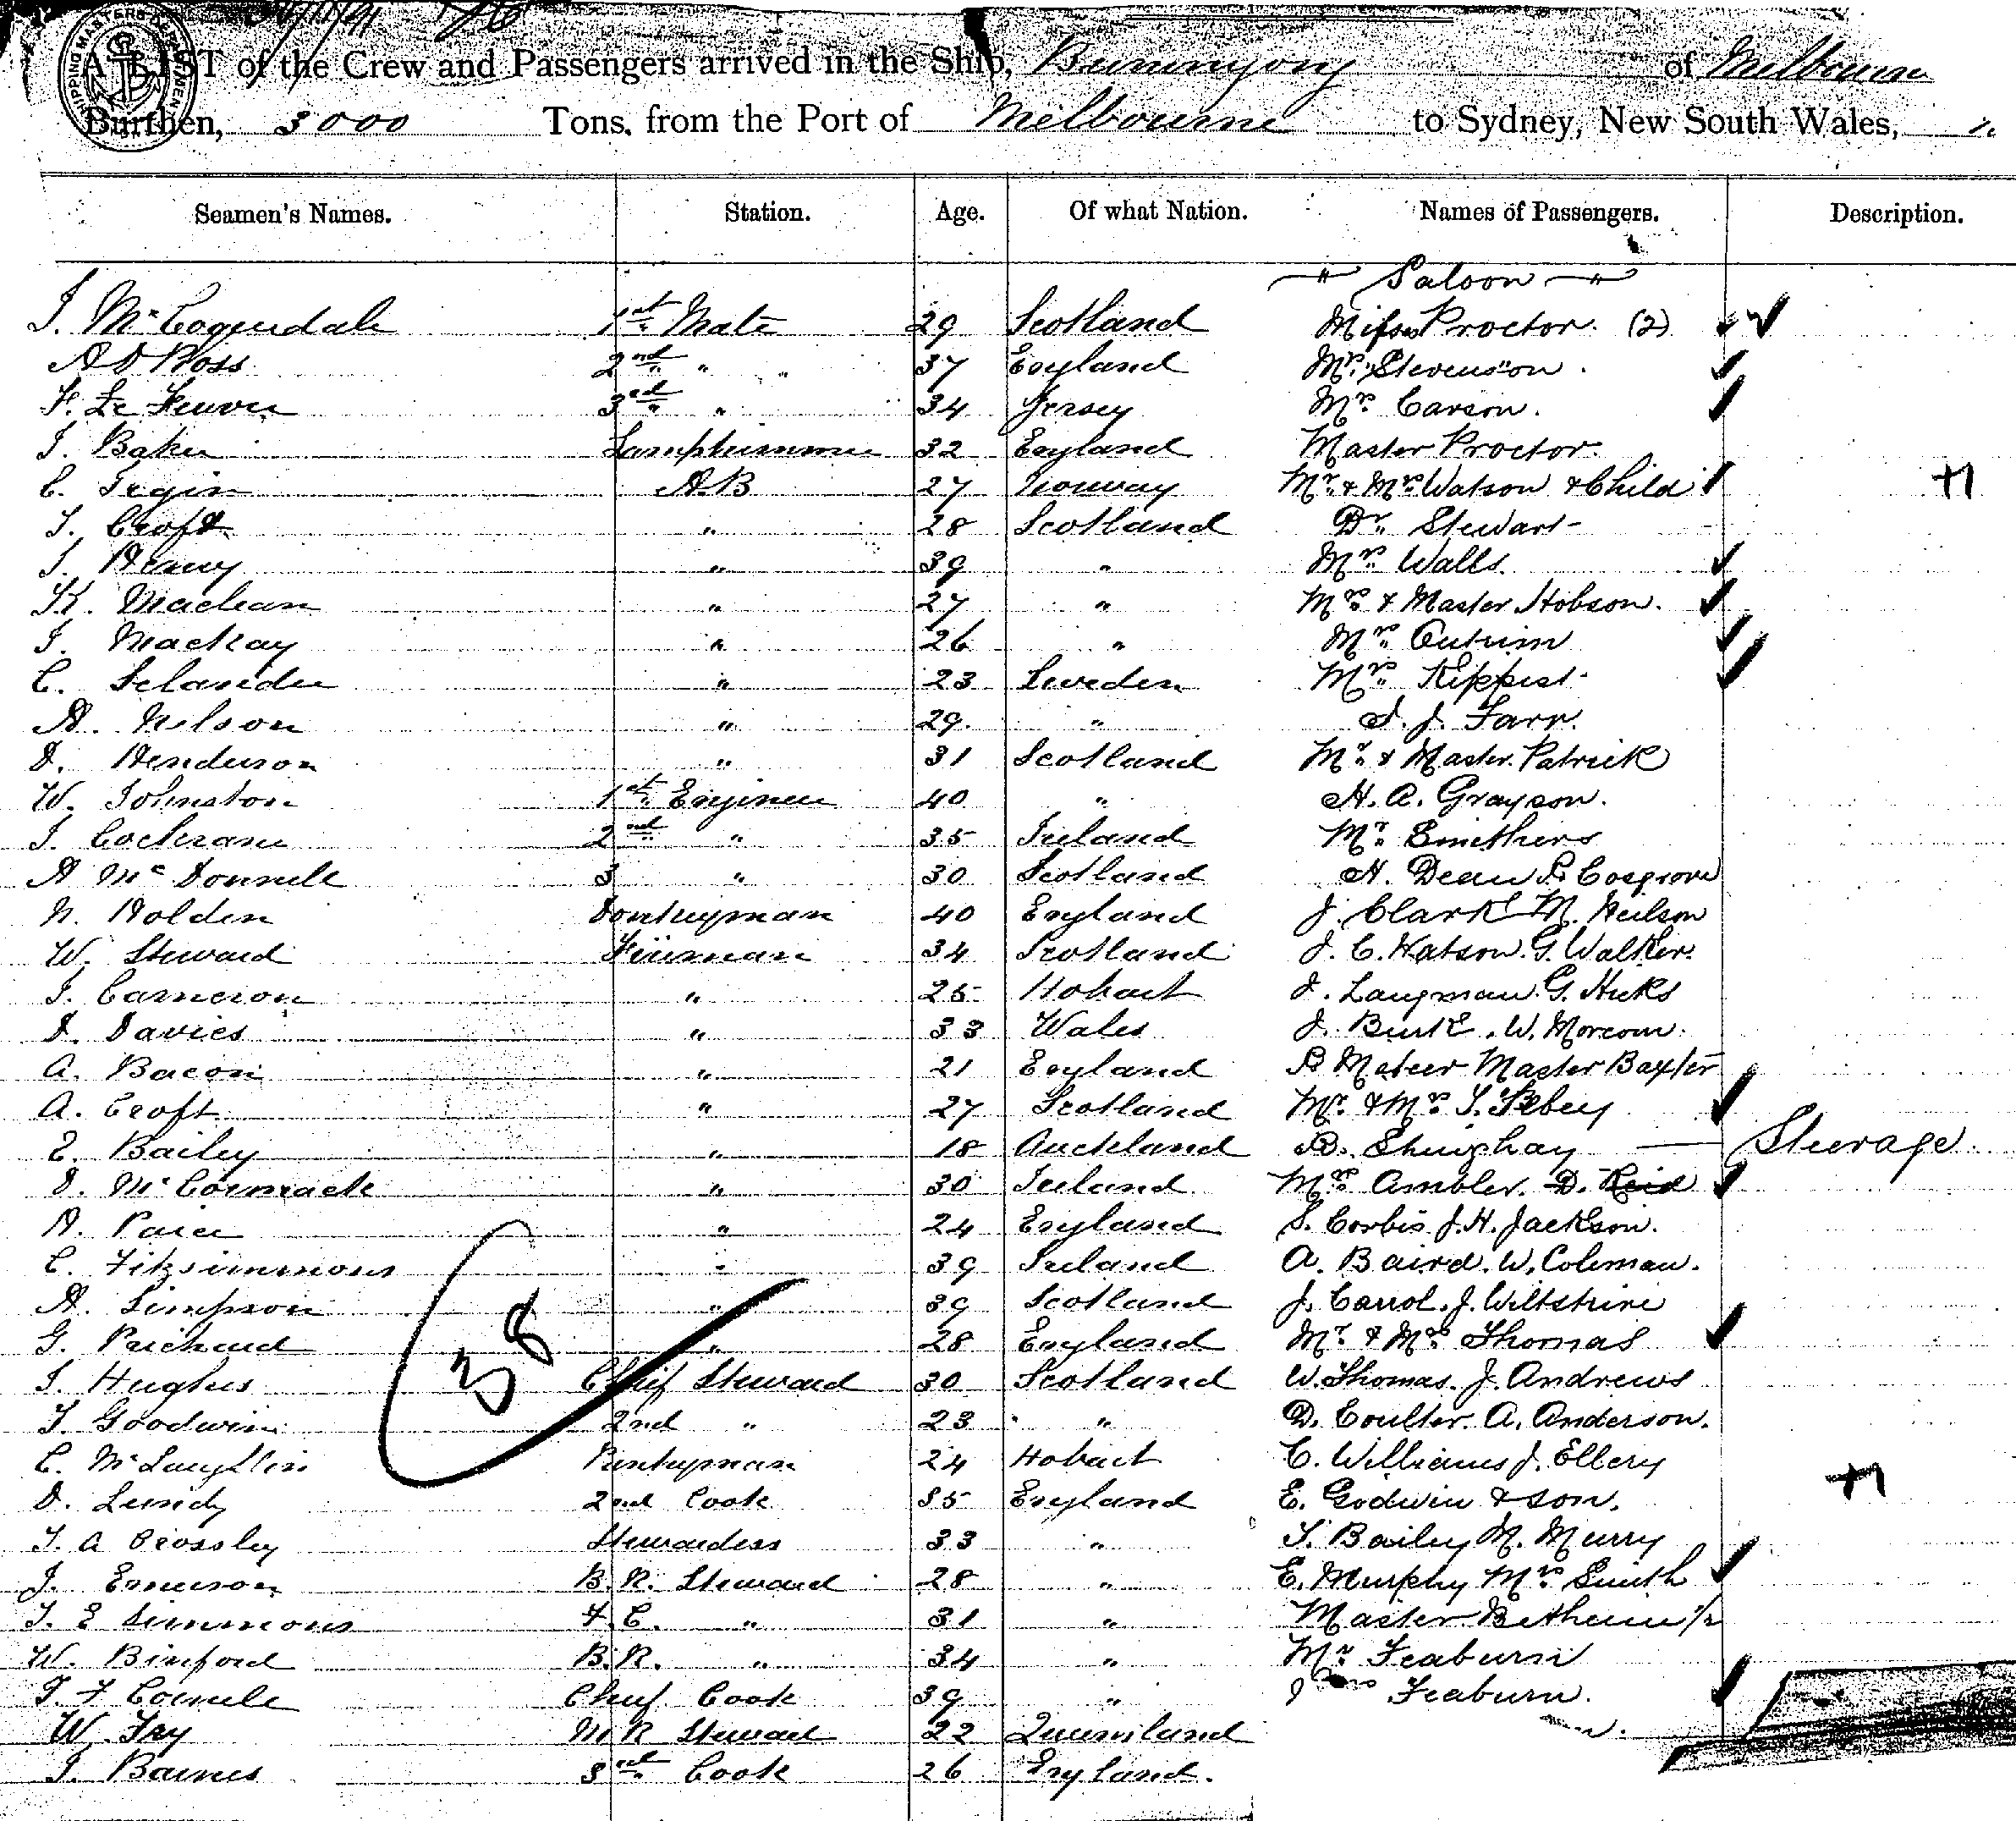 A LIST of the Crew and Passengers arrived in the Ship, Buninyong of Melbourne
Burthen, 3000 Tons, from the Port of Melbourne to Sydney, New South Wales,
Seamen's Names. Station. Age. Of what Nation. Names of Passengers. Description.
" Saloon "
1st Mate 29 Scotland Misses Proctor. (2)
A D Ross 2nd " " 37 England Mrs. Stevenson.
F. Le Feuvre 3rd " 34 Jersey Mrs Carson.
J. Baker Lamptrimmer 32 England Master Proctor.
C. A.B 27 Norway Mr. & Mrs Watson & Child
J. Croft " 28 Scotland Dr. Stewart
J. " 39 " Mrs Walls.
K. Maclean " 27 " Mrs & Master Hobson.
J. Mackay " 26 " Mrs Outrim
C. Selander " 23 Sweden Mrs Kippist
A. Nelson " 29. " J. J. Farr.
D. Henderson " 31 Scotland Mr. & Master Patrick
W. Johnston 1st Engineer 40 " H. A. Grayson.
J. Cochrane 2nd " 35 Ireland Mr. Smithers
A McDonnell 3 " 30 Scotland H. Dean P. Cosgrove
N. Holden Donkeyman 40 England J. Clark M. Neilson
W. Steward Fireman 34 Scotland J. C. Watson. G. Walker.
J. Cameron " 25 Hobart J. Langman. G. Hicks
D. Davies " 33 Wales J. Burke. W. Morcom.
A. Bacon " 21 England R Mateer Master Baxter
A. Croft " 27 Scotland Mr. & Mrs J.
E. Bailey " 18 Auckland R. Shughay — Steerage
D. McCormack " 30 Ireland Mrs Ambler. D. Reid
A. " 24 England S. Corbis J. H. Jackson.
C. Fitzsimmons " 39 Ireland A. Baird. W. Coleman.
A. Simpson " 39 Scotland J. Carrol. J. Wiltshire
G. Prichard " 28 England Mr. & Mrs Thomas
J. Hughes Chief Steward 30 Scotland W. Thomas. J. Andrews
J. Goodwin 2nd " 23 " D. Coulter. A. Anderson.
C. McLaughlin Pantryman 24 Hobart C. Williams J. Ellery
D. Lundy 2nd Cook 35 England E. Godwin & son.
J. A Crossley Stewardess 33 " T. Bailey M. Murry
J. Emerson B. R. Steward 28 " E. Murphy Mrs Smith
J. E Simmons F. C. " 31 " Master 1/2
W. Binford B. R. " 34 " Mr Seaburn
J. F Chief Cook 39 " Seaburn.
W. Fry M R Steward 22 Queensland
J. Barnes 3rd Cook 26 England.
38